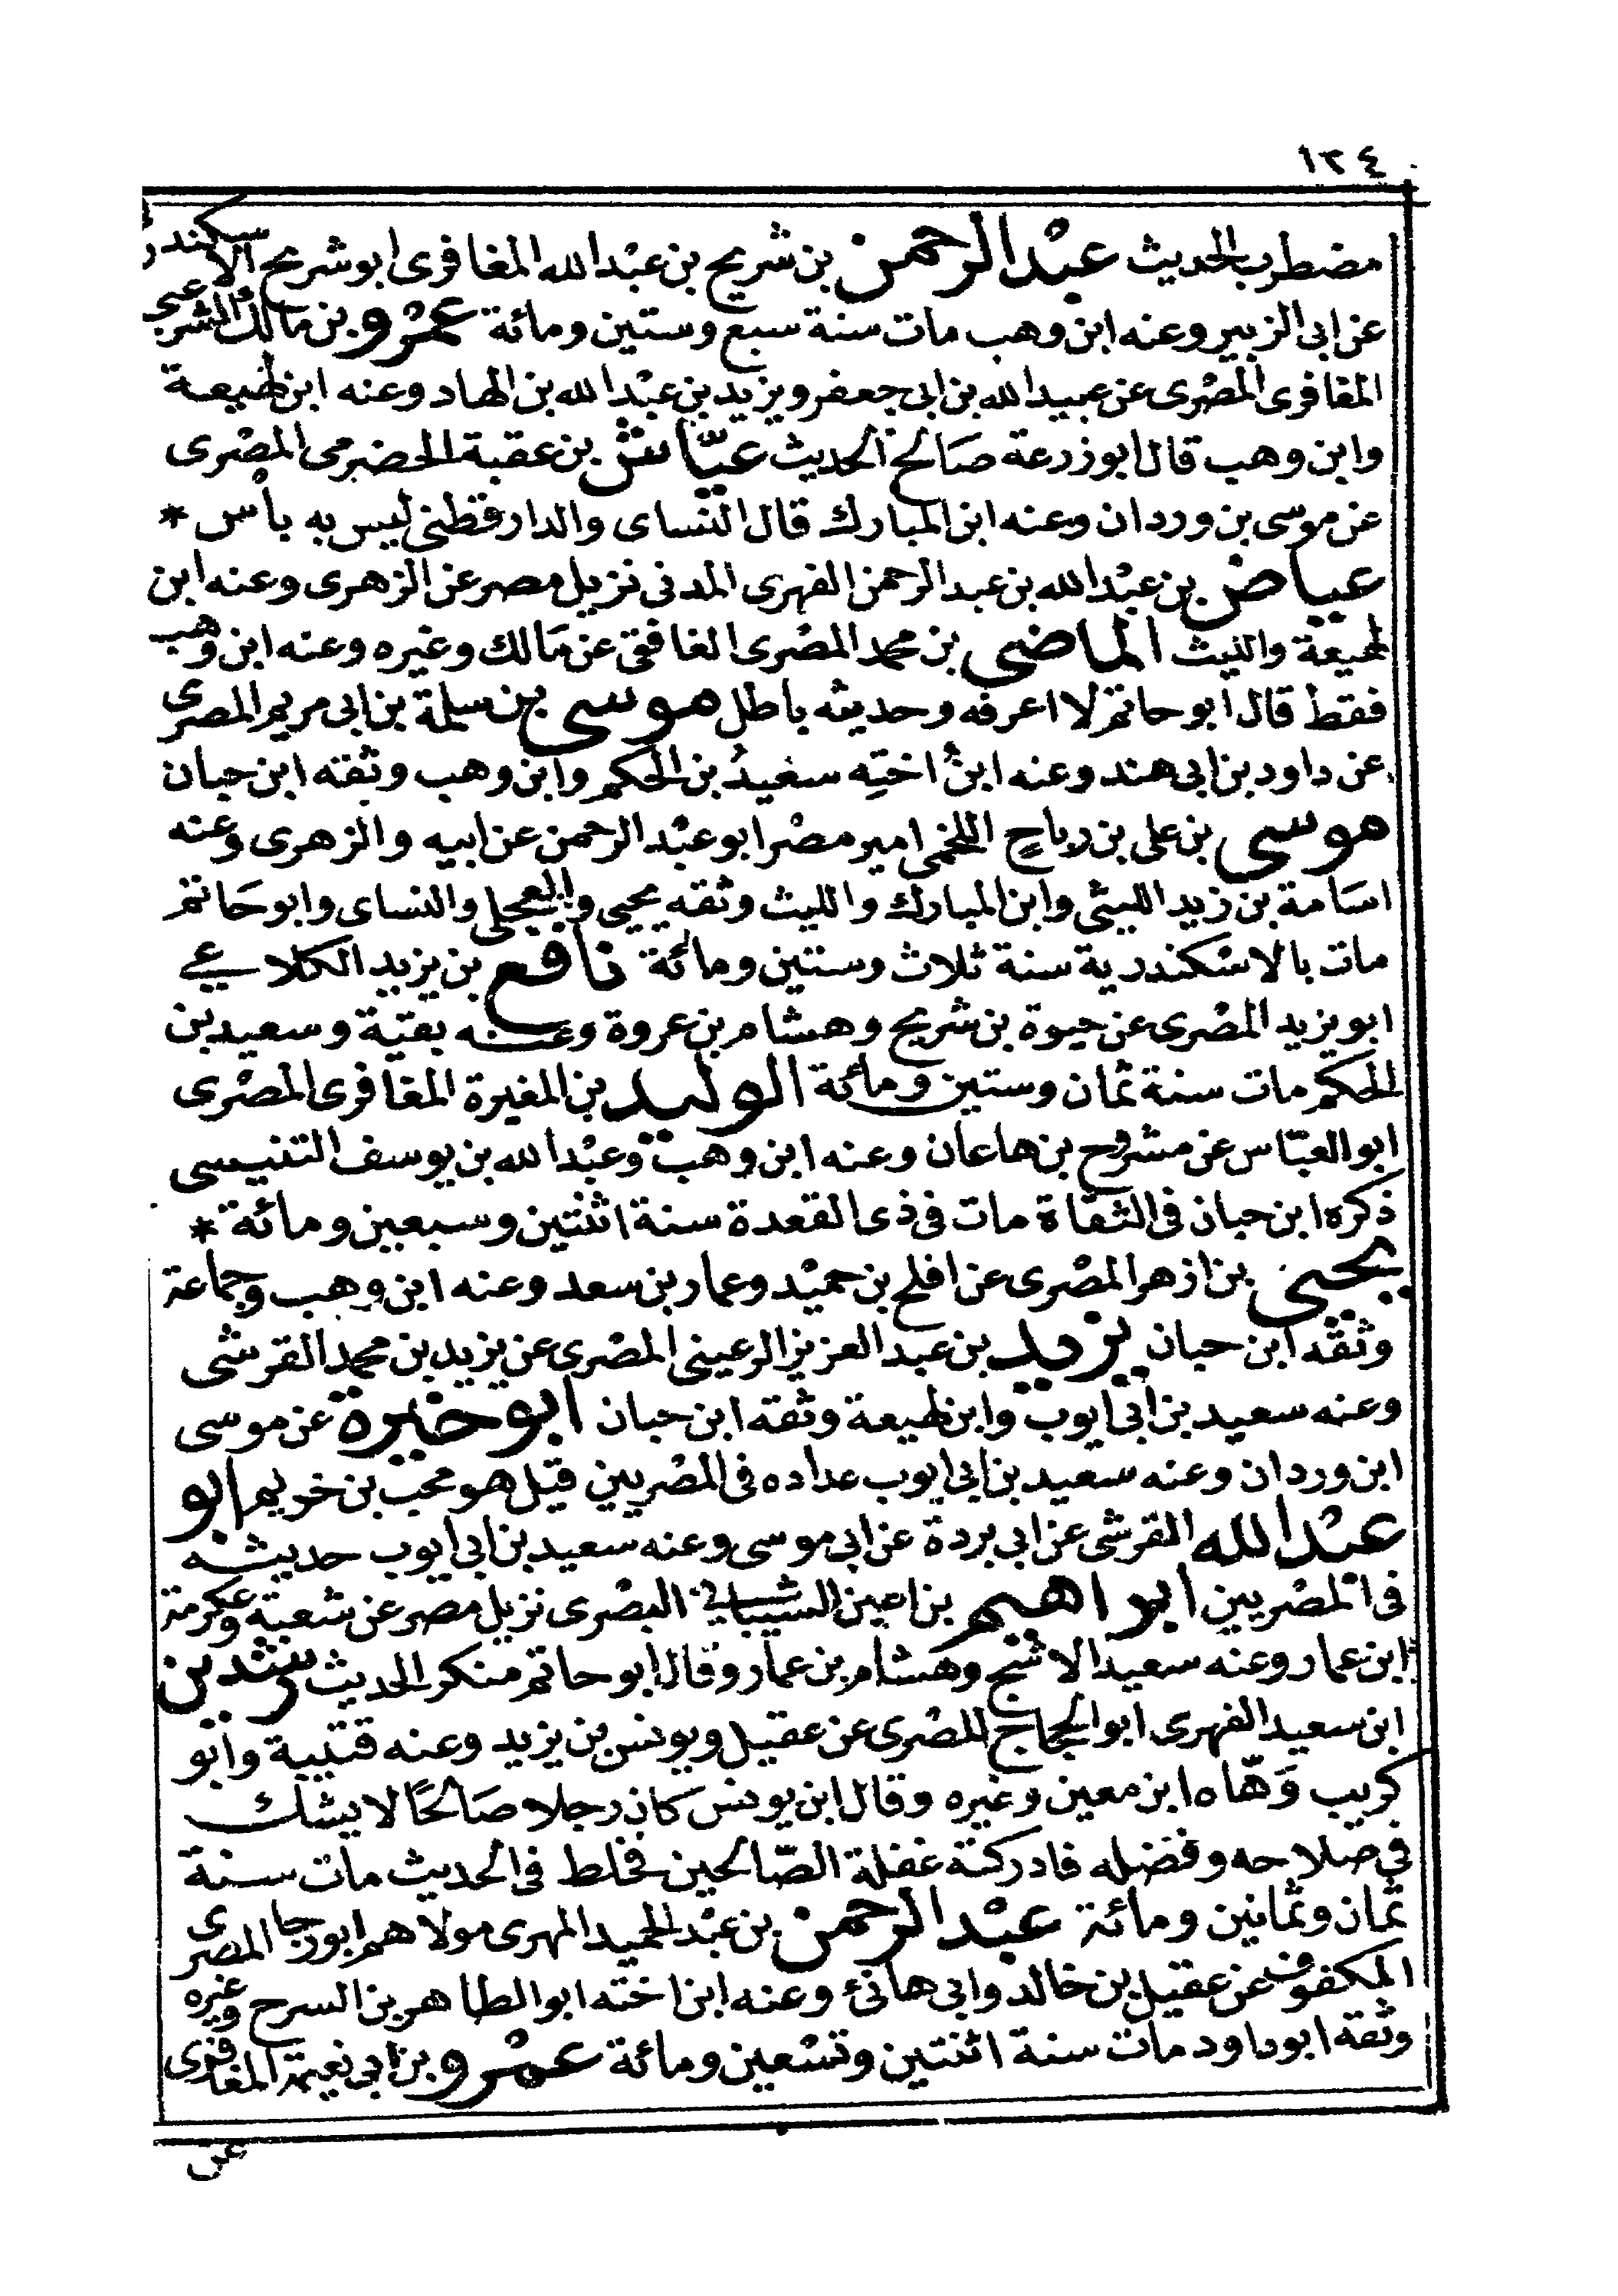 ١٣٤
مضطرب الحديث عبد الرحمن بن شريح بن عبد الله المغافرى ابو شريح الاسكندر
عن ابى الزبير وعنه ابن وهب مات سنة سبع وستين ومائة عمرو بن مالك الشرعبى
المغافرى المصرى عن عبيد الله بن ابى جعفر ويزيد بن عبد الله بن الهاد وعنه ابن لهيعة
وابن وهب قال ابو زرعة صالح الحديث عياش بن عقبة الحضرمى المصرى
عن موسى بن وردان وعنه ابن المبارك قال النساى والدار قطنى ليس به بأس *
عياض بن عبد الله بن عبد الرحمن الفهرى المدنى نزيل مصر عن الزهرى وعنه ابن
لهيعة والليث الماضى بن محمد المصرى الغافقى عن مالك وغيره وعنه ابن وهب
فقط قال ابو حاتم لا اعرفه وحديثه باطل موسى بن سلمة بن ابى مريم المصرى
عن داود بن ابى هند وعنه ابن اخته سعيد بن الحكم وابن وهب وثقه ابن حبان
موسى بن على بن رباح اللخمى امير مصر ابو عبد الرحمن عن ابيه والزهرى وعنه
اسامة بن زيد الليثى وابن المبارك والليث وثقه يحيى والعجلى والنساى وابو حاتم
مات بالاسكندرية سنة ثلاث وستين ومائة نافع بن يزيد الكلاعى
ابو يزيد المصرى عن حيوة بن شريح وهشام بن عروة وعنه بقية وسعيد بن
الحكم مات سنة ثمان وستين ومائة الوليد بن المغيرة المغافرى المصرى
ابو العباس عن مشرح بن هاعان وعنه ابن وهب وعبد الله بن يوسف التنيسى
ذكره ابن حبان فى الثقاة مات فى ذى القعدة سنة اثنتين وسبعين ومائة *
يحيى بن ازهر المصرى عن افلح بن حميد وعمار بن سعد وعنه ابن وهب وجماعة
وثقه ابن حبان يزيد بن عبد العزيز الرعينى المصرى عن يزيد بن محمد القرشى
وعنه سعيد بن ابى ايوب وابن لهيعة وثقه ابن حبان ابو خيرة عن موسى
ابن وردان وعنه سعيد بن ابى ايوب عداده فى المصريين قيل هو محب بن خريم ابو
عبد الله القرشى عن ابى بردة عن ابى موسى وعنه سعيد بن ابى ايوب حديثه
فى المصريين ابراهيم بن اعين الشيبانى البصرى نزيل مصر عن شعبة وعكرمة
ابن عمار وعنه سعيد الاشج وهشام بن عمار وقال ابو حاتم منكر الحديث رشدين
ابن سعيد الفهرى ابو الحجاج المصرى عن عقيل ويونس بن يزيد وعنه قتيبة وابو
كريب وهّاه ابن معين وغيره وقال ابن يونس كان رجلا صالحًا لا يشك
فى صلاحه وفضله فادركته غفلة الصّالحين فخلط فى الحديث مات سنة
ثمان وثمانين ومائة عبد الرحمن بن عبد الحميد المهرى مولاهم ابو رجا المصرى
المكفوف عن عقيل بن خالد وابى هانئ وعنه ابن اخته ابو الطاهر بن السرح وغيره
وثقه ابو داود مات سنة اثنتين وتسعين ومائة عمرو بن ابى نعيمة المغافرى
عن